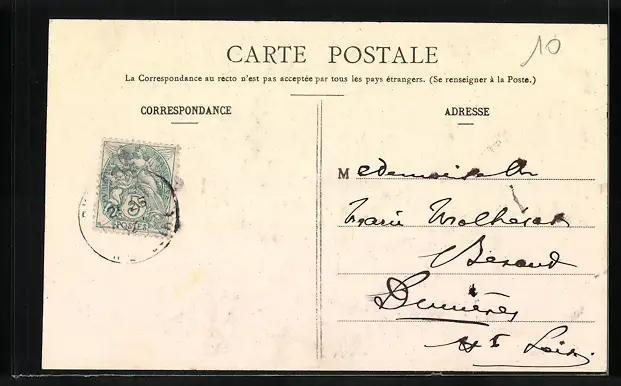 10
CARTE POSTALE
La Correspondance au recto n'est pas acceptée par tous les pays étrangers. (Se renseigner à la Poste.)
CORRESPONDANCE
ADRESSE
Mademoiselle
Marie
Béraud
Dunières
Hte Loire
5
POSTES